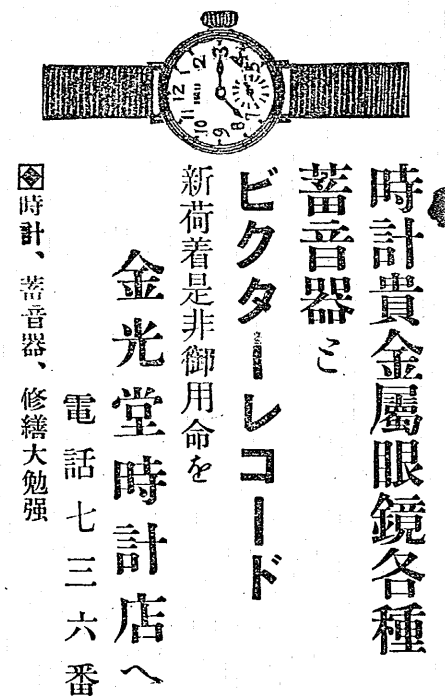 時計貴金屬眼鏡各種
蓄音器と
ビクターレコード
新荷着是非御用命を
金光堂時計店へ
電話七三六番
時計、蓄音器、修繕大勉强